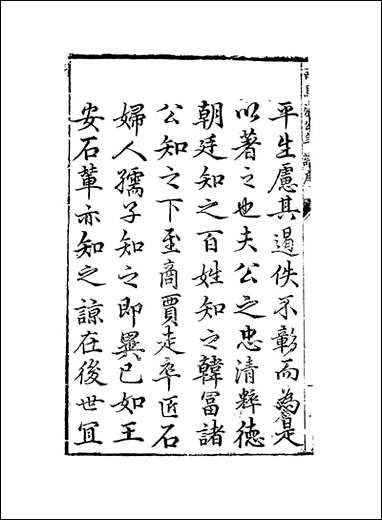 平生慮其遏佚不彰而為是
以著之也夫公之忠清粹德
朝廷知之百姓知之韓冨諸
公知之下至商賈走卒匠石
婦人孺子知之即異已如王
安石輩亦知之諒在後世冝